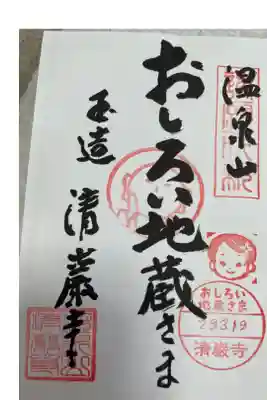 温泉山
おしろい地蔵さま
玉造 清巌寺
おしろい
地蔵さま
29319
清巌寺